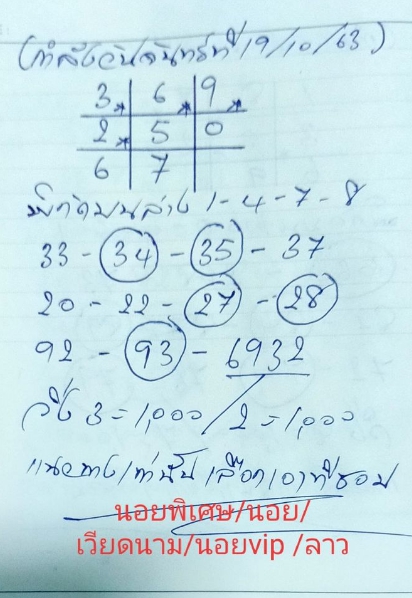 (กำลังวันจันทร์ที่ 19/10/63)
3 6 9
2 5 0
6 7
พิกัดบนล่าง 1-4-7-8
33 - 34 - 35 - 37
20 - 22 - 27 - 28
92 - 93 - 6932
วิ่ง 3=1,000/2=1,000
แนวทางเท่านั้นเลือกเอาที่ชอบ
นอยพิเศษ/นอย/
เวียดนาม/นอยvip /ลาว